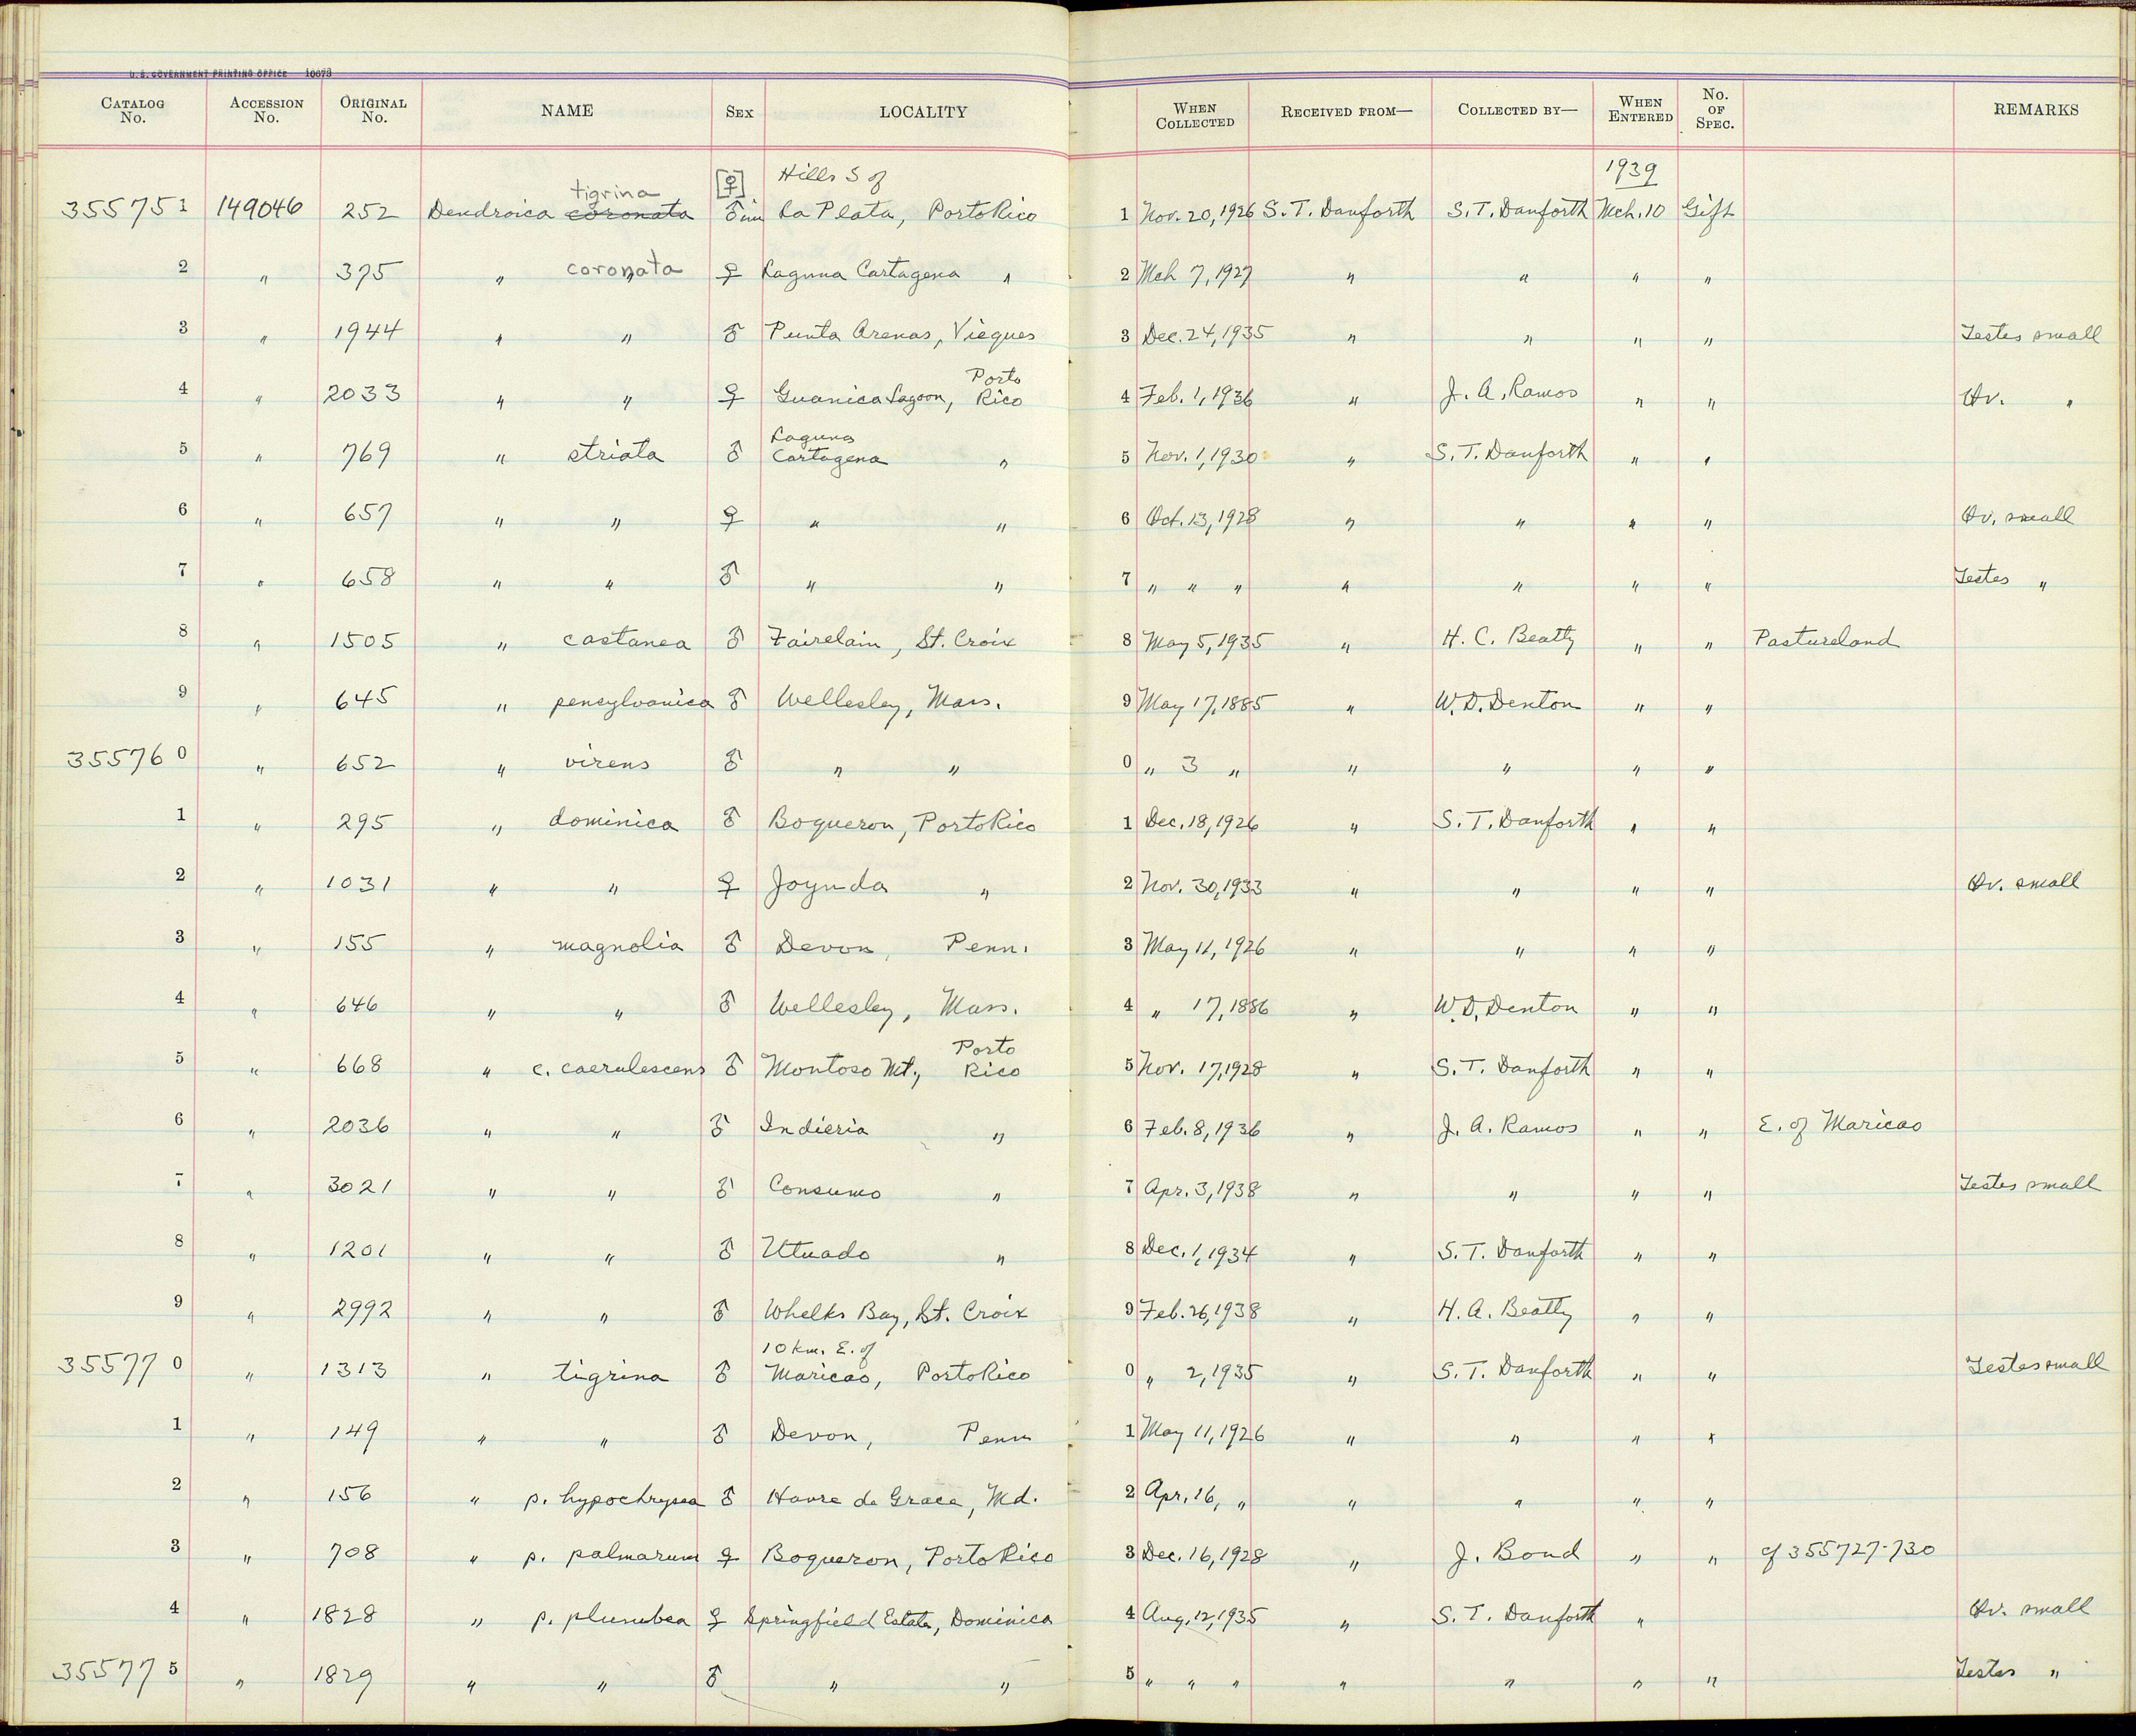 U.S. GOVERNMENT PRINTING OFFICE 10673
CATALOG No. ACCESSION No. ORIGINAL No. NAME SEX LOCALITY WHEN COLLECTED RECEIVED FROM— COLLECTED BY— WHEN ENTERED No. OF SPEC. REMARKS
tigrina [♀] Hills S of 1939
355751 149046 252 Dendroica coronata ♂ im La Plata, Porto Rico 1 Nov. 20, 1926 S. T. Danforth S. T. Danforth Mch. 10 Gift
2 " 375 " coronata ♀ Laguna Cartagena " 2 Mch 7, 1927 " " " "
3 " 1944 " " ♂ Punta Arenas, Vieques 3 Dec. 24, 1935 " " " " Testes small
Porto
4 " 2033 " " ♀ Guanica Lagoon, Rico 4 Feb. 1, 1936 " J. A. Ramos " " Ov. "
Laguna
5 " 769 " striata ♂ Cartagena " 5 Nov. 1, 1930 " S. T. Danforth " "
6 " 657 " " ♀ " " 6 Oct. 13, 1928 " " " " Ov. small
7 " 658 " " ♂ " " 7 " " " " " " " Testes "
8 " 1505 " castanea ♂ Fairelain, St. Croix 8 May 5, 1935 " H. C. Beatty " " Pastureland
9 " 645 " pensylvanica ♂ Wellesley, Mass. 9 May 17, 1885 " W. D. Denton " "
355760 " 652 " virens ♂ " " 0 " 3 " " " " "
1 " 295 " dominica ♂ Boqueron, Porto Rico 1 Dec. 18, 1926 " S. T. Danforth " "
2 " 1031 " " ♀ Joyuda " 2 Nov. 30, 1933 " " " " Ov. small
3 " 155 " magnolia ♂ Devon, Penn. 3 May 11, 1926 " " " "
4 " 646 " " ♂ Wellesley, Mass. 4 " 17, 1886 " W. D. Denton " "
Porto
5 " 668 " c. caerulescens ♂ Montoso Mt., Rico 5 Nov. 17, 1928 " S. T. Danforth " "
6 " 2036 " " ♂ Indieria " 6 Feb. 8, 1936 " J. A. Ramos " " E. of Maricao
7 " 3021 " " ♂ Consumo " 7 Apr. 3, 1938 " " " " Testes small
8 " 1201 " " ♂ Utuado " 8 Dec. 1, 1934 " S. T. Danforth " "
9 " 2992 " " ♂ Whelks Bay, St. Croix 9 Feb. 26, 1938 " H. A. Beatty " "
10 km. E. of
355770 " 1313 " tigrina ♂ Maricao, Porto Rico 0 " 2, 1935 " S. T. Danforth " " Testes small
1 " 149 " " ♂ Devon, Penn 1 May 11, 1926 " " " "
2 " 156 " p. hypochrysea ♂ Havre de Grace, Md. 2 Apr. 16, " " " " "
3 " 708 " p. palmarum ♀ Boqueron, Porto Rico 3 Dec. 16, 1928 " J. Bond " " cf 355727-730
4 " 1828 " p. plumbea ♀ Springfield Estate, Dominica 4 Aug. 12, 1935 " S. T. Danforth " Ov. small
355775 " 1829 " " ♂ " " 5 " " " " " " " Testes "